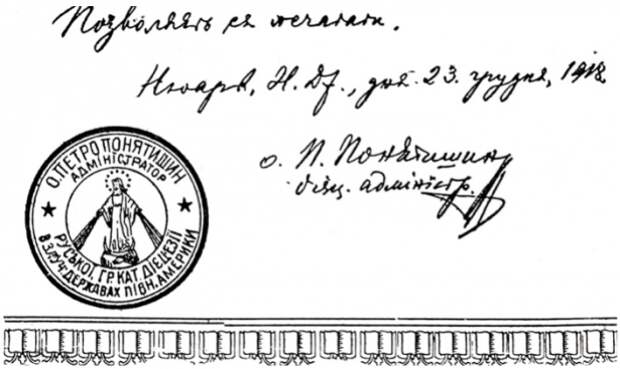 Позволяєть ся печатати.
Нюарк, Н. Дж., дня 23. грудня, 1918
о. П. Понятишин
діец. адміністр.
О. ПЕТРО ПОНЯТИШИН
АДМІНІСТРАТОР
РУСЬКОЇ, ГР. КАТ. ДІЄЦЕЗІЇ
В ЗЛУЧ. ДЕРЖАВАХ ПІВН. АМЕРИКИ